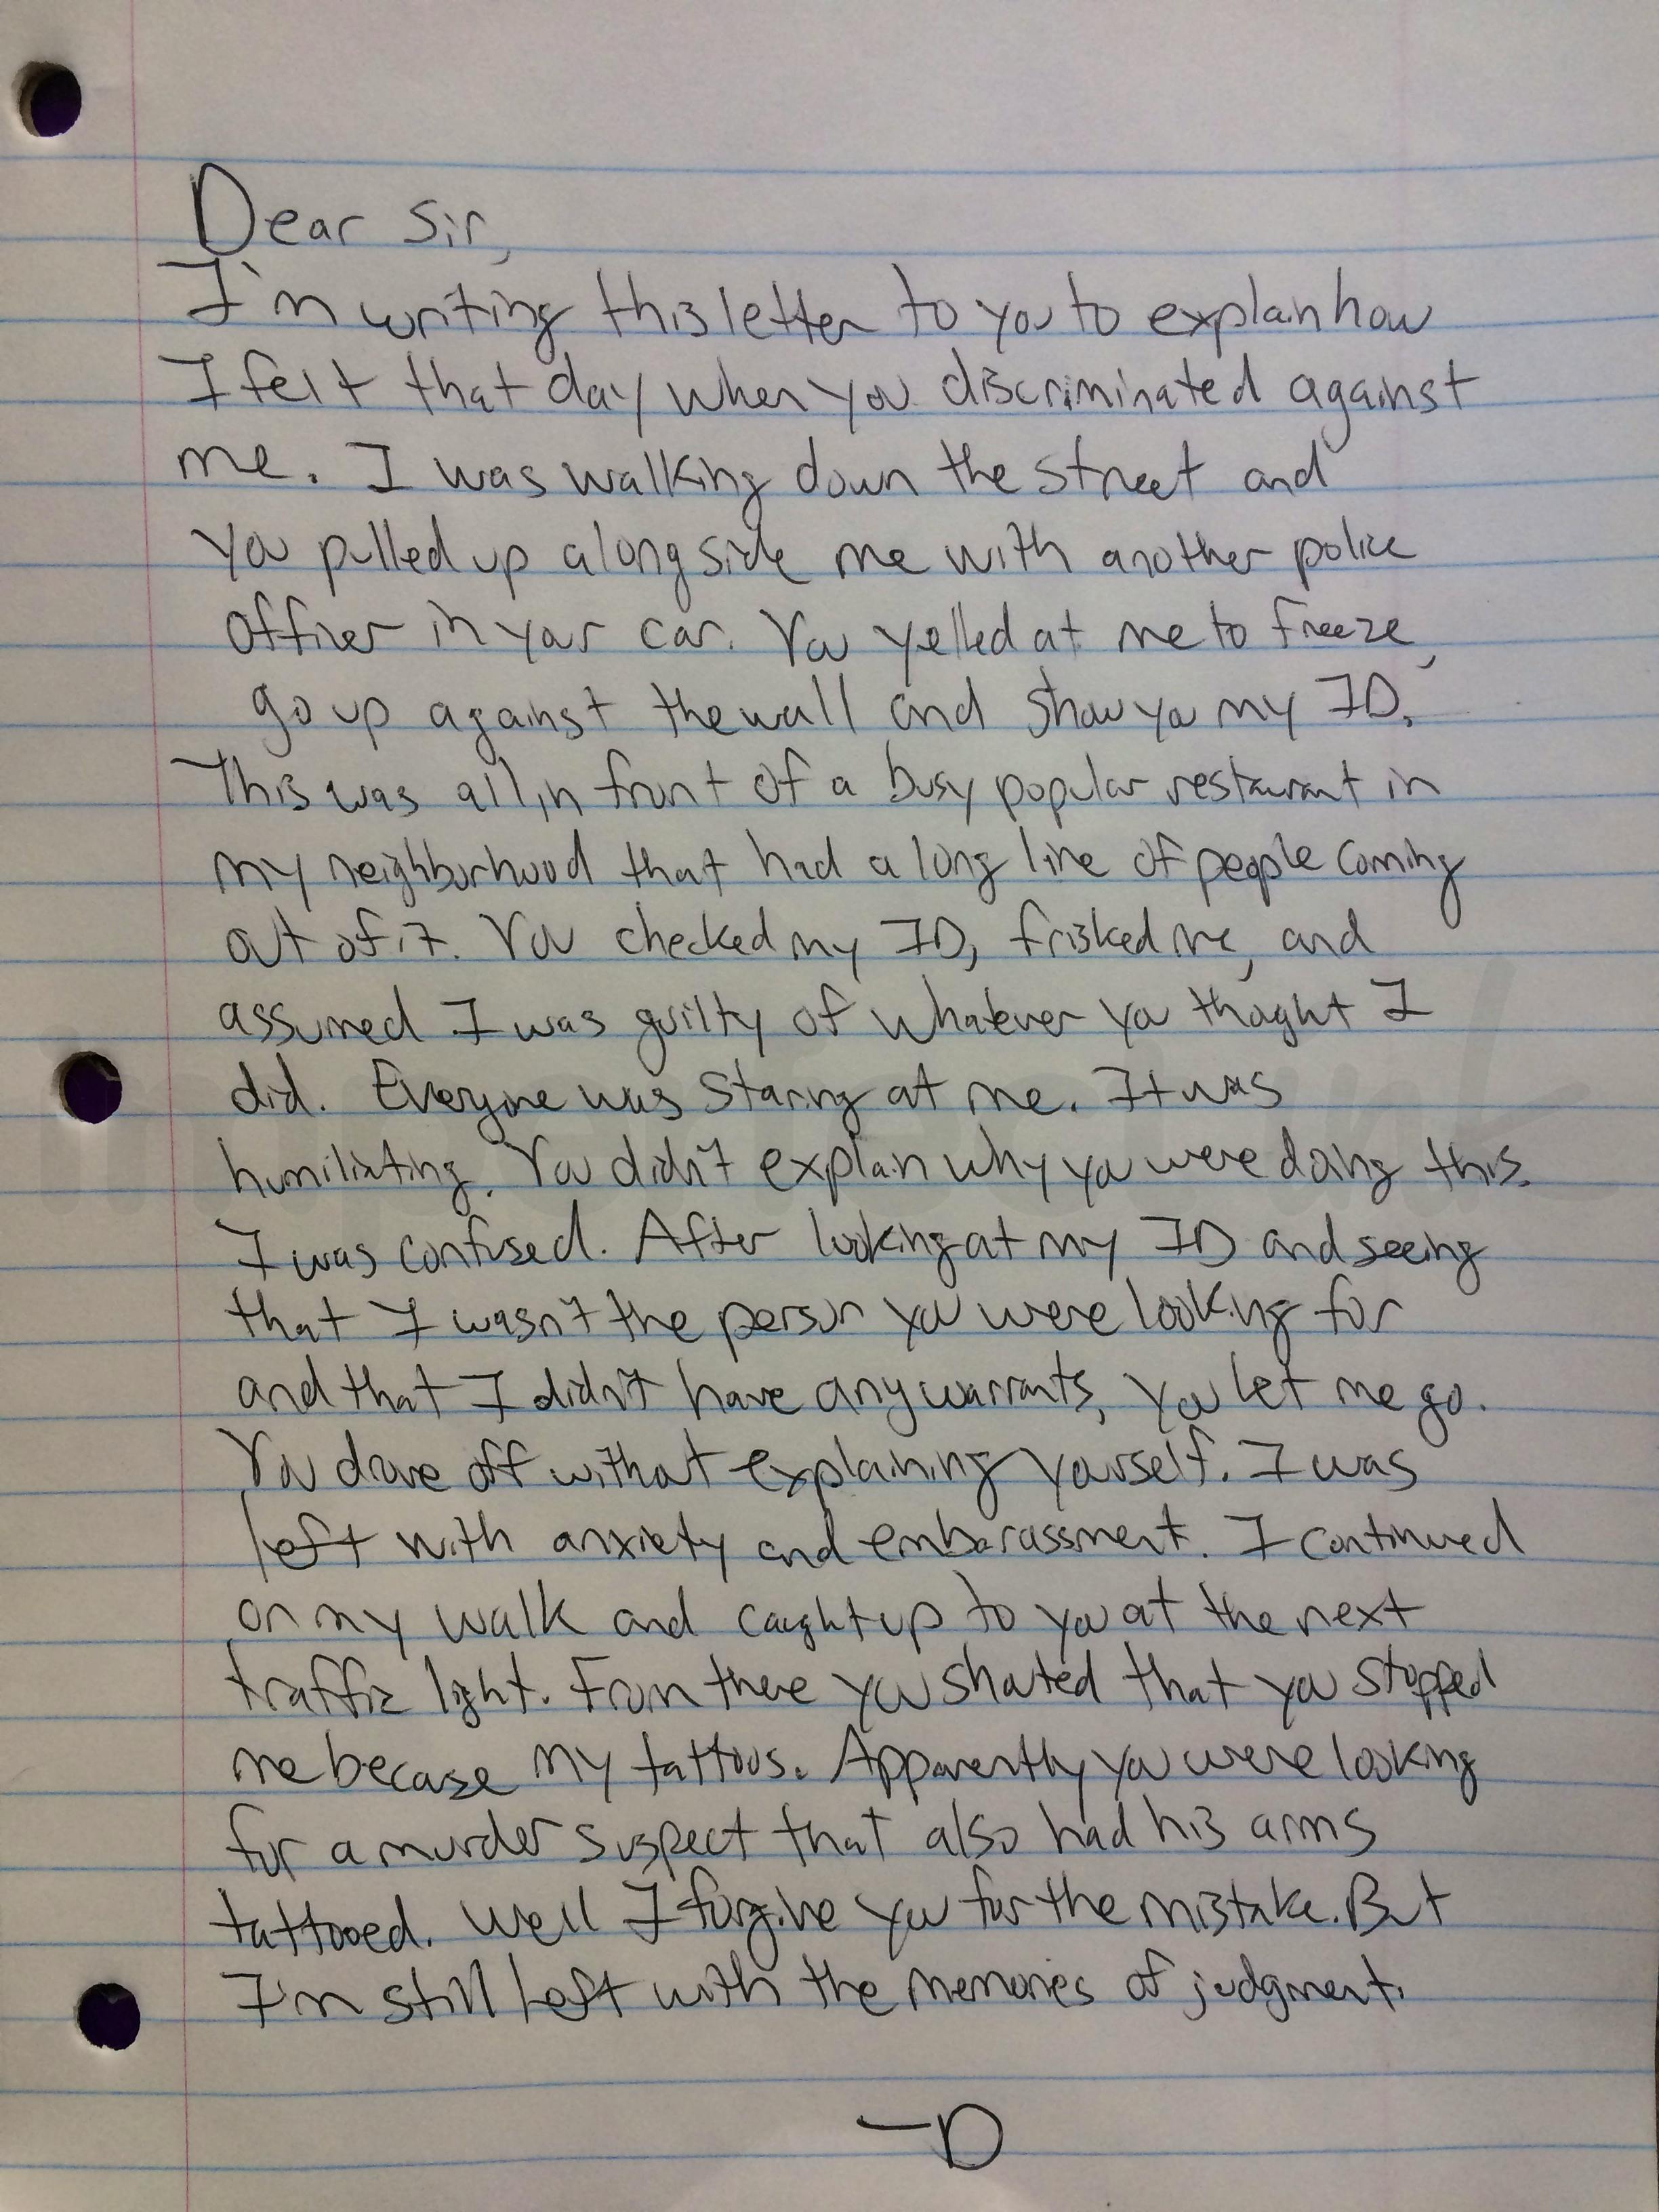 Dear Sir,
I'm writing this letter to you to explain how
I felt that day when you discriminated against
me. I was walking down the street and
you pulled up alongside me with another police
officer in your car. You yelled at me to freeze,
go up against the wall and show you my ID.
This was all in front of a busy popular restaurant in
my neighborhood that had a long line of people coming
out of it. You checked my ID, frisked me, and
assumed I was guilty of whatever you thought I
did. Everyone was staring at me. It was
humiliating. You didn't explain why you were doing this.
I was confused. After looking at my ID and seeing
that I wasn't the person you were looking for
and that I didn't have any warrants, you let me go.
You drove off without explaining yourself. I was
left with anxiety and embarassment. I continued
on my walk and caught up to you at the next
traffic light. From there you shouted that you stopped
me because my tattoos. Apparently you were looking
for a murder suspect that also had his arms
tattooed. Well I forgive you for the mistake. But
I'm still left with the memories of judgment.
—D